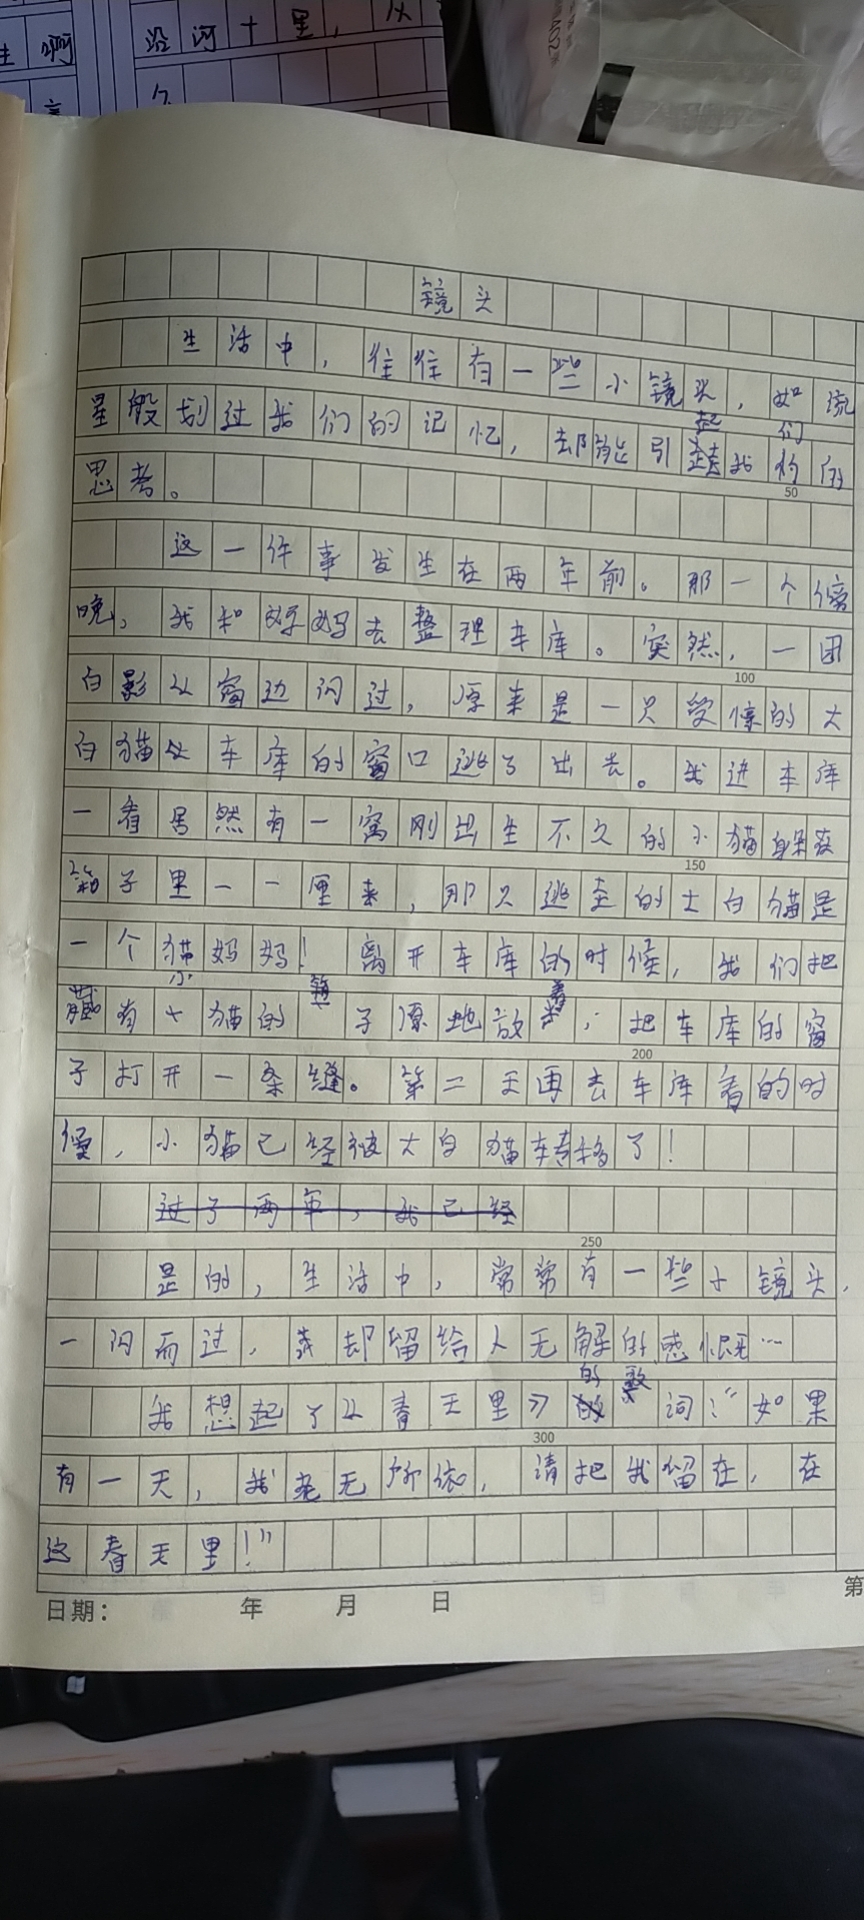 生啊
沿河十里，从
镜头
生活中，往往有一些小镜头，如流
星般划过我们的记忆，却能引起我们的
思考。
这一件事发生在两年前。那一个傍
晚，我和妈妈去整理车库。突然，一团
白影从窗边闪过，原来是一只受惊的大
白猫从车库的窗口逃了出去。我进车库
一看居然有一窝刚出生不久的小猫躲在
箱子里一一厘来，那只逃走的大白猫是
一个猫妈妈！离开车库的时候，我们把
藏有小猫的箱子原地放着；把车库的窗
子打开一条缝。第二天再去车库看的时
候，小猫已经被大白猫转移了！
过了两年，我已经
250
是的，生活中，常常有一些小镜头，
一闪而过，却留给人无解的感慨…
我想起了《春天里》的歌词：“如果
有一天，我老无所依，请把我留在，在
这春天里！”
50
100
150
200
300
日期： 年 月 日
第